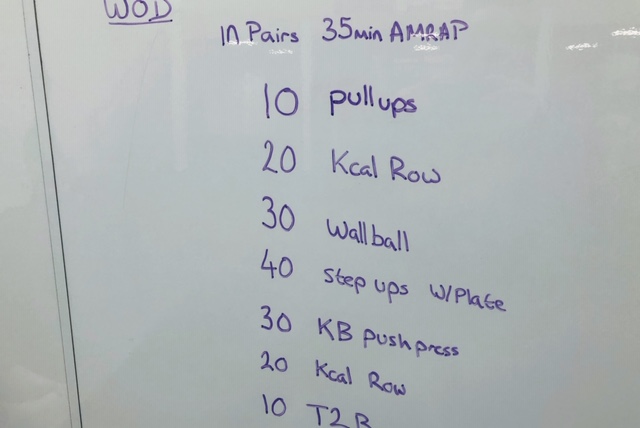 WOD
In Pairs 35min AMRAP
10 pullups
20 Kcal Row
30 Wallball
40 Step ups W/Plate
30 KB push press
20 Kcal Row
10 T2B